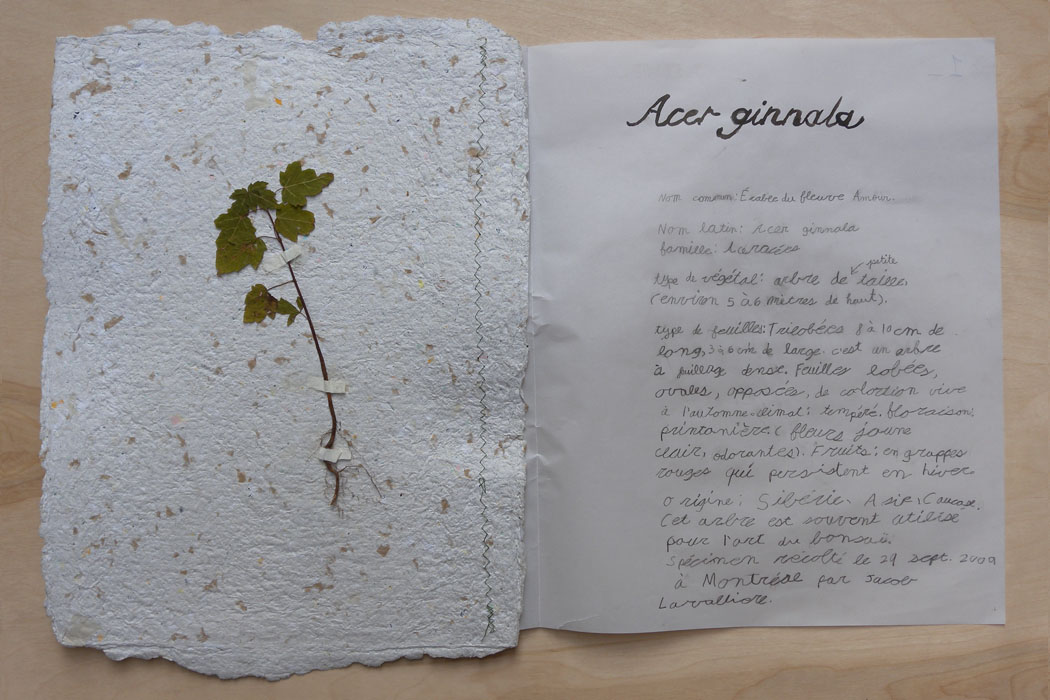 Acer ginnala
Nom commun: Érable du fleuve Amour.
Nom latin: Acer ginnala
famille: Acéracées
petite
type de végétal: arbre de taille,
(environ 5 à 6 mètres de haut).
type de feuilles: Trilobées 8 à 10 cm de
long, 3 à 6 cm de large. c'est un arbre
à dense. Feuilles lobées,
ovales, opposées, de colortion vive
à l'automne. climat: tempéré. floraison:
printanière. (fleurs jaune
clair, odorantes). Fruits: en grappes
rouges qui persistent en hiver
Origine: Sibérie. Asie, Caucase.
Cet arbre est souvent utilisé
pour l'art du bonsaï.
Spécimen récolté le 29 sept. 2009
à Montréal par Jacob
Lavallière.